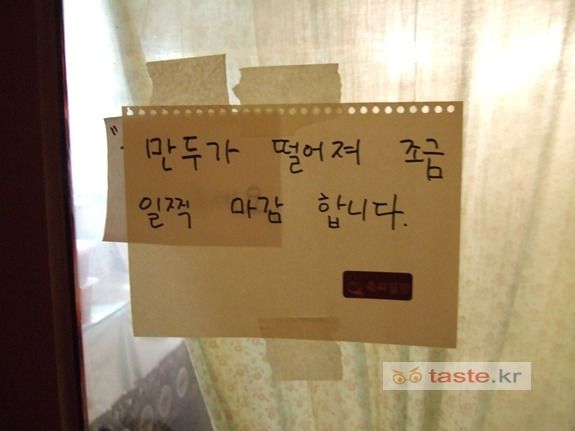 만두가 떨어져 조금
일찍 마감 합니다.
taste.kr